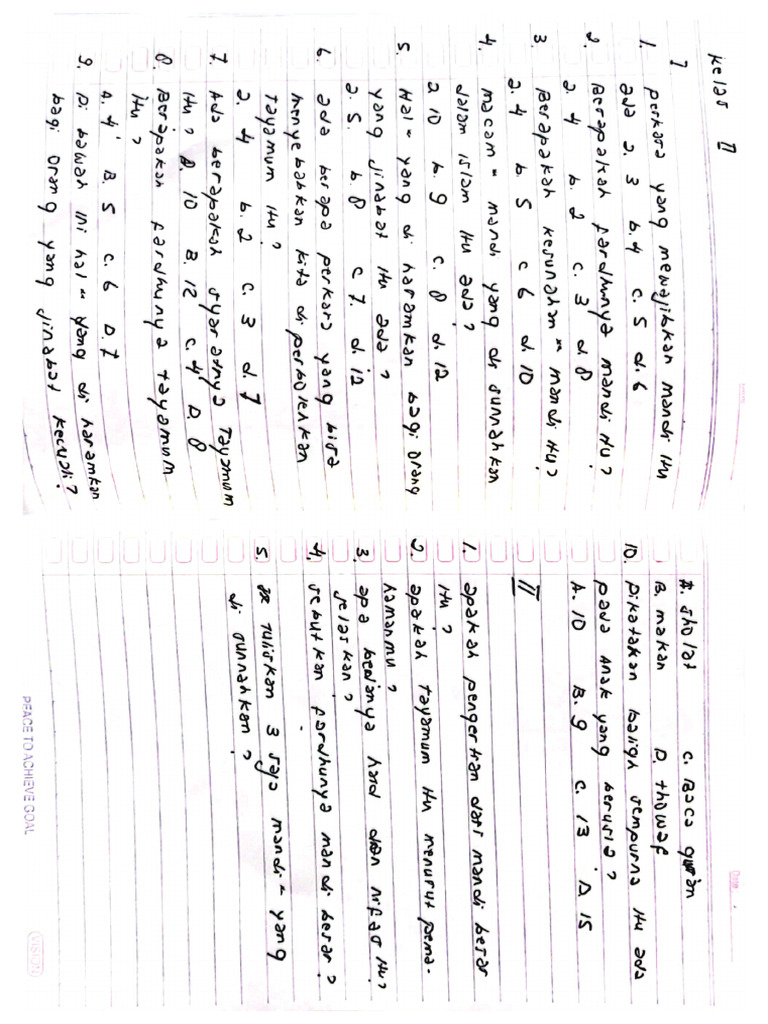 Kelas II
I
1. perkara yang mewajibkan mandi itu
ada a. 3 b. 4 c. 5 d. 6
2. Berapakah fardhunya mandi itu?
a. 4 b. 2 c. 3 d. 8
3. Berapakah kesunahan" mandi itu?
a. 4 b 5 c 6 d. 10
4. macam" mandi yang di sunnahkan
dalam islam itu ada?
a 10 b. 9 c. 8 d. 12
5. Hal" yang di haramkan bagi orang
yang jinabat itu ada?
a. 5. b. 8 c 7. d. 12
6. ada berapa perkara yang bisa
menyebabkan kita di perbolehkan
Tayamum itu?
a. 4 b. 2 c. 3 d. 7
7. Ada berapakah syaratnya Tayamum
itu? A. 10 B. 12 c. 4 D. 8
8. Berapakah fardhunya tayamum
itu?
A. 4 B. 5 c. 6 D. 7
9. Di bawah ini hal" yang di haramkan
bagi orang yang jinabat kecuali?
A. sholat c. Baca qur'an
B. makan D. thowaf
10. Dikatakan baligh sempurna itu ada
pada anak yang berusia?
A. 10 B. 9 c. 13 D 15
II
1. apakah pengertian dari mandi besar
itu?
2. apakah tayamum itu menurut pema-
hamanmu?
3. apa bedanya haid dan nifas itu?
jelaskan?
4. sebutkan fardhunya mandi besar?
5. Tuliskan 3 saja mandi" yang
di sunnahkan?
PEACE TO ACHIEVE GOAL
VISION